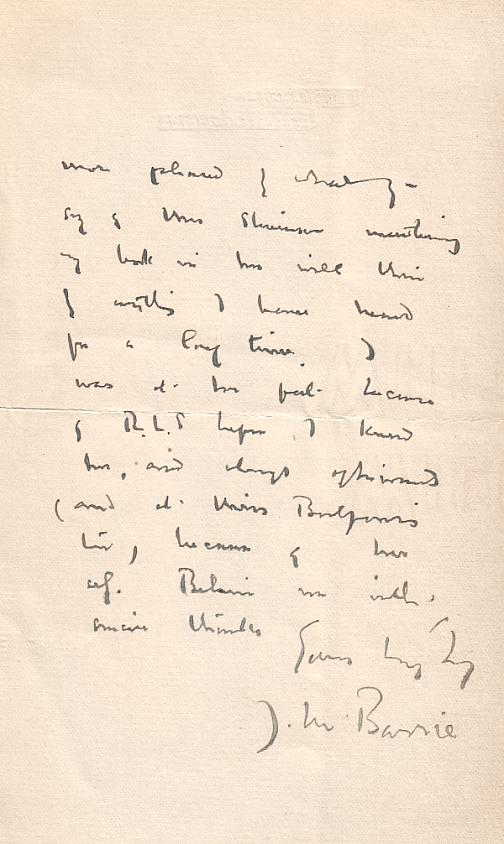 more pleased
say of Mrs Stevenson mentioning
my book in her will than
of anything I have heard
for a long time. I
was at her feet because
of R.L.S before I knew
her, and always afterwards
(and at Miss
too), because of her
self. Believe me with
sincere thanks
Yours very truly
J. M. Barrie